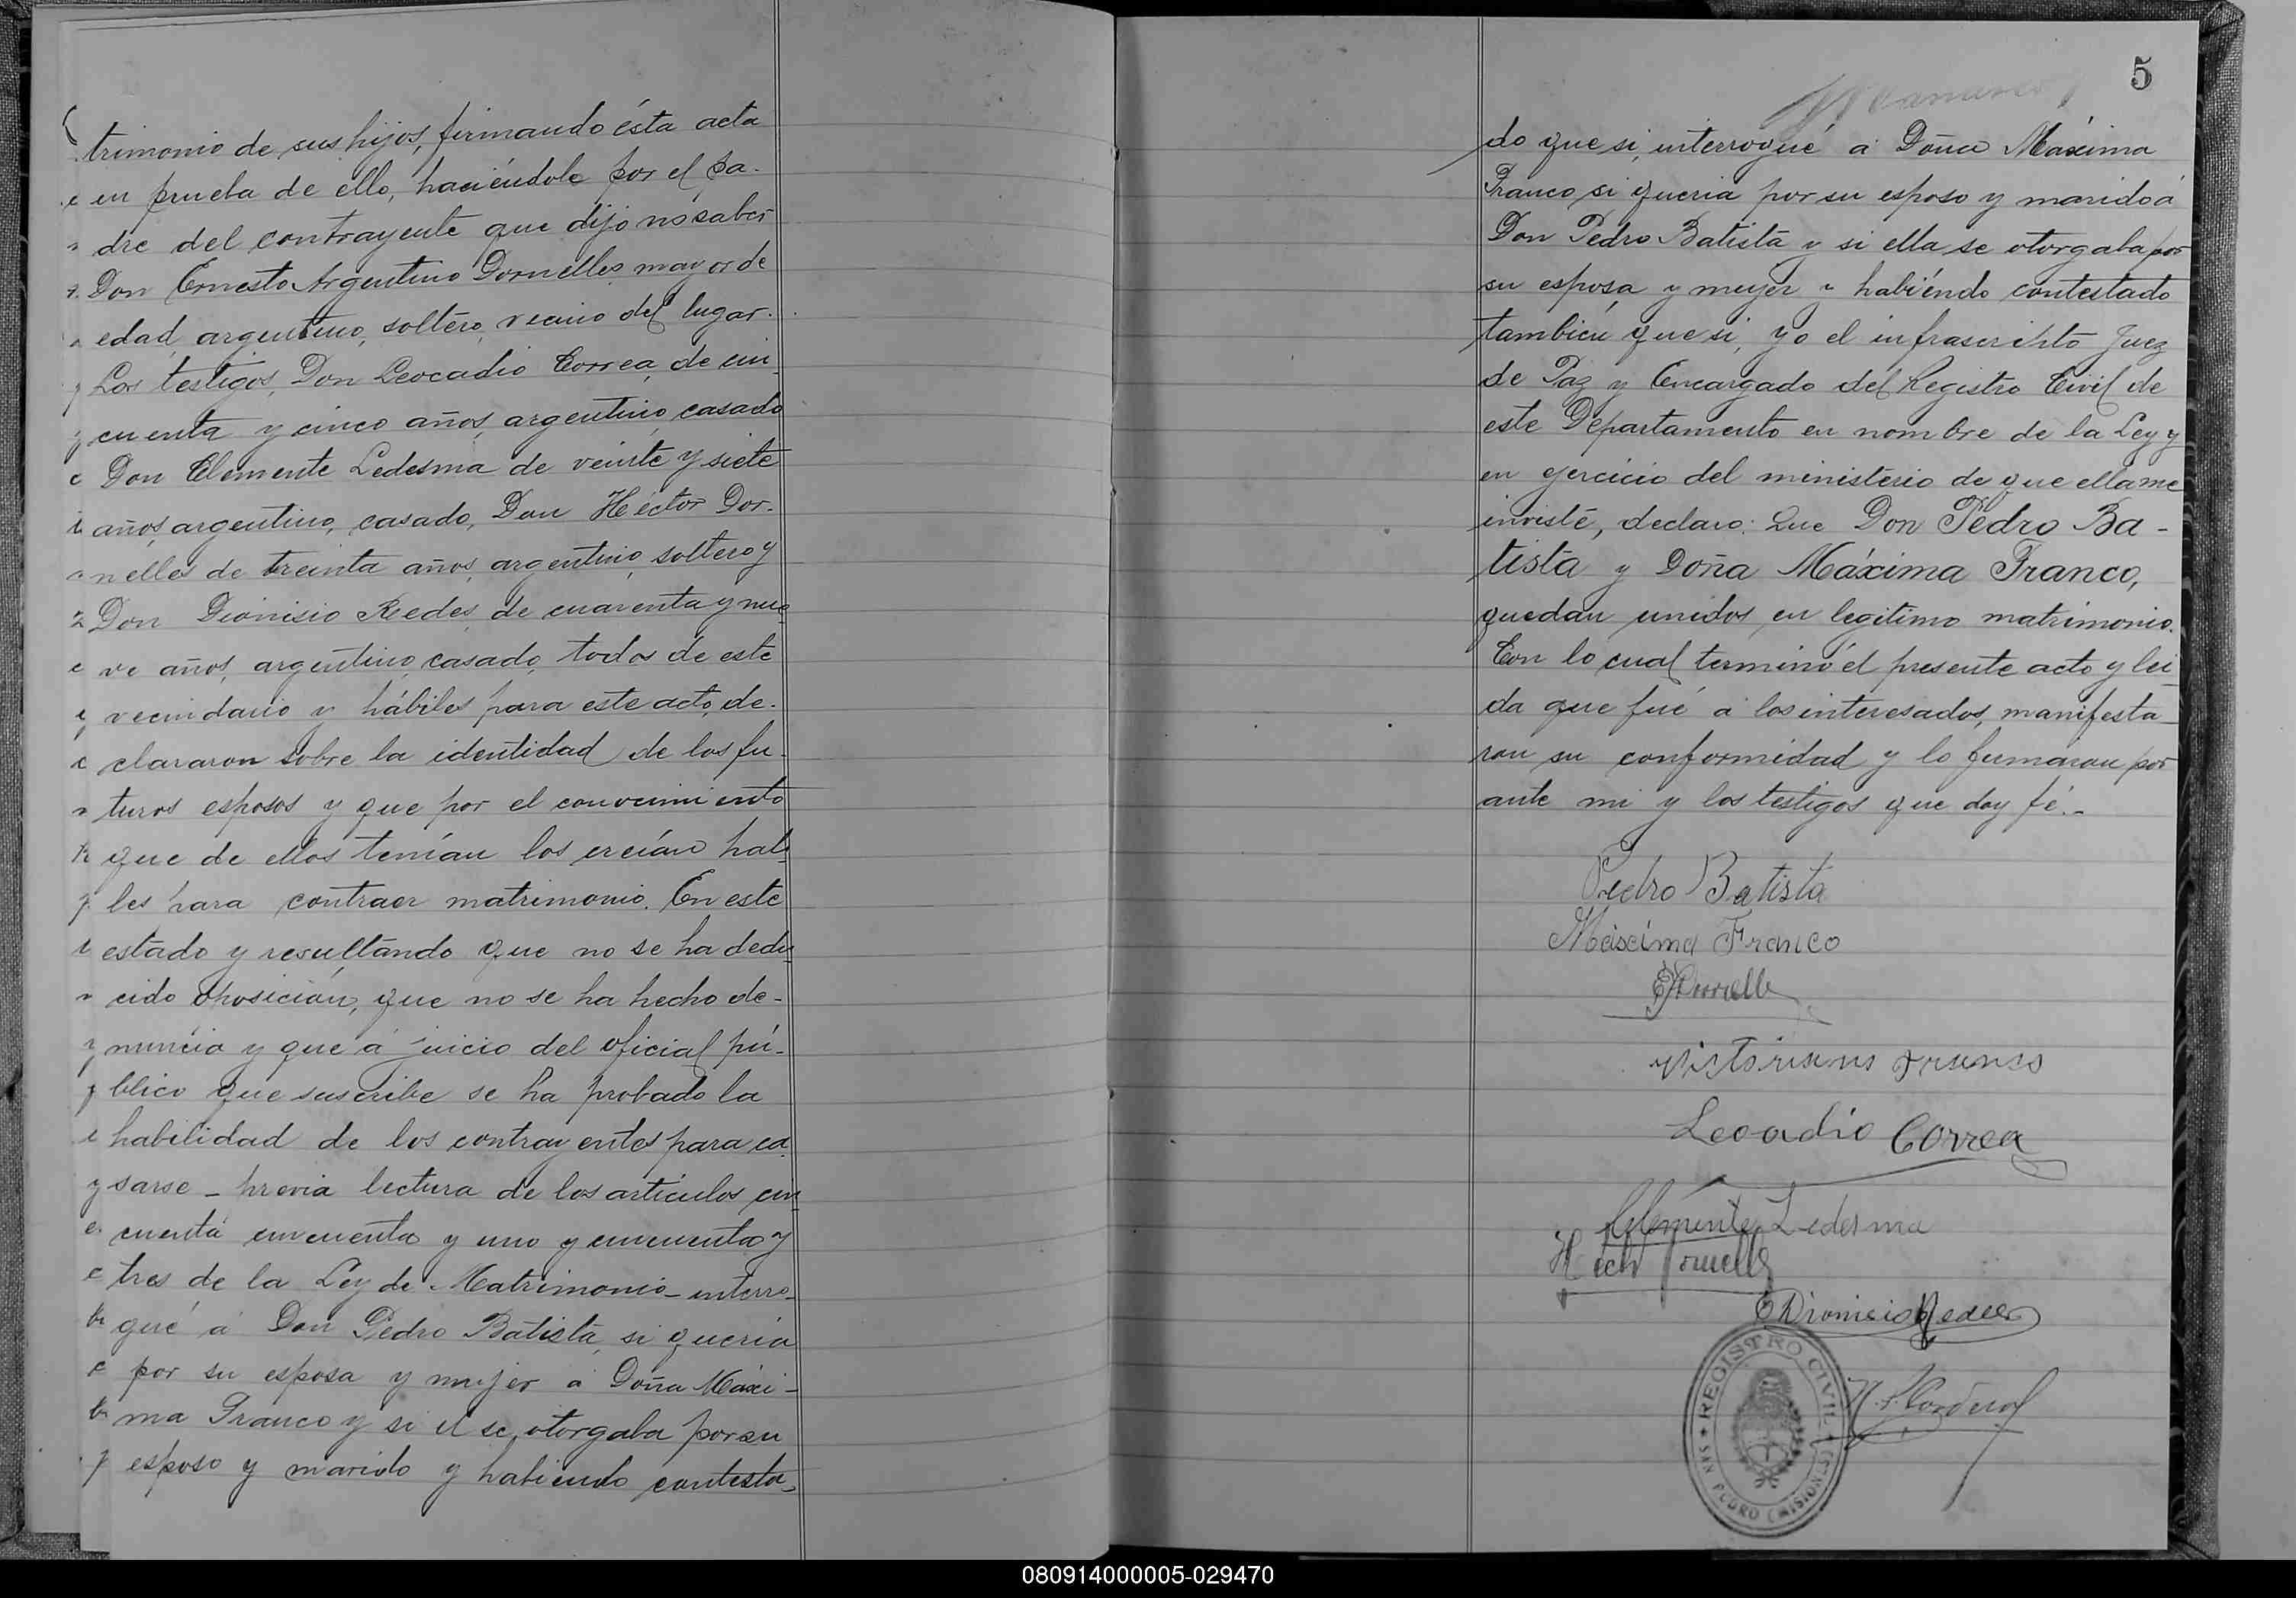 trimonio de sus hijos, firmando ésta acta
en prueba de ello, haciéndole por el pa-
dre del contrayente que dijo no saber
Don Ernesto Argentino Dornelles, mayor de
edad, argentino, soltero, vecino del lugar.
Los testigos, Don Leocadio Correa, de cin-
cuenta y cinco años, argentino, casado
Don Clemente Ledesma de veinte y siete
años, argentino, casado, Don Héctor Dor-
nelles de treinta años, argentino, soltero y
Don Dionisio Redes, de cuarenta y nue
ve años, argentino, casado, todos de este
vecindario y hábiles para este acto, de-
clararon sobre la identidad de los fu-
turos esposos y que por el conocimiento
que de ellos tenían los creían hábi
les para contraer matrimonio. En este
estado y resultando que no se ha dedu
cido oposición, que no se ha hecho de-
nuncia y que á juicio del oficial pú-
blico que suscribe se ha probado la
habilidad de los contrayentes para ca
sarse - previa lectura de los artículos cin
cuenta cincuenta y uno y cincuenta y
tres de la Ley de Matrimonio - interro-
gué á Don Pedro Batista, si quería
por su esposa y mujer á Doña Máxi-
ma Franco y si él se otorgaba por su
esposo y marido y habiendo contesta-
5
do que si, interrogué á Doña Máxima
Franco, si quería por su esposo y marido á
Don Pedro Batista y si ella se otorgaba por
su esposa y mujer y habiéndo contestado
tambien que si, yo el infrascrihto Juez
de Paz y Encargado del Registro Civil de
este Departamento en nombre de la Ley y
en ejercicio del ministerio de que ella me
inviste, declaro: Que Don Pedro Ba-
tista y Doña Máxima Franco,
quedan unidos en legítimo matrimonio.
Con lo cual terminó el presente acto y lei
da que fué á los interesados, manifesta-
ron su conformidad y lo firmaron por
ante mi y los testigos que doy fé.-
Pedro Batista
Máxima Franco
Victoriano Franco
Leoadio Correa
Clemente Ledesma
Dionicio Redes
REGISTRO CIVIL
SAN PEDRO (MISIONES)
080914000005-029470